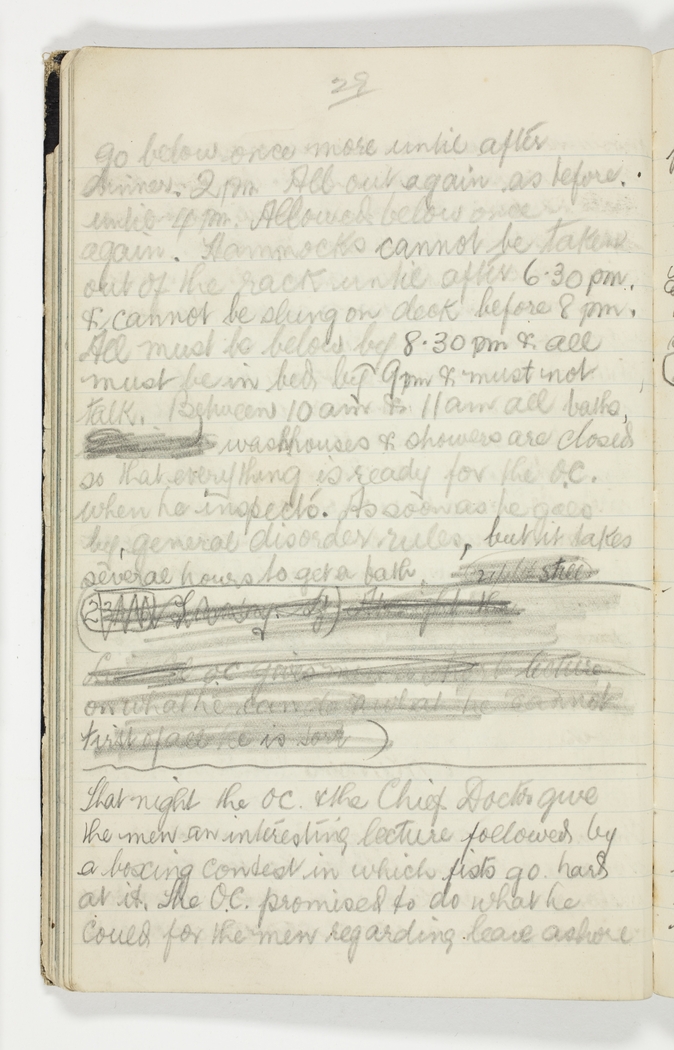 29
go below once more until after
dinner. 2 pm All out again as before.
until 4 pm. Allowed below once
again. Hammocks cannot be taken
out of the rack until after 6.30 pm.
& cannot be slung on deck before 8 pm.
All must be below by 8.30 pm & all
must be in bed by 9 pm & must not
talk. Between 10 am & 11 am all baths,
washhouses & showers are closed
so that everything is ready for the O.C.
when he inspects. As soon as he goes
by, general disorder rules, but it takes
several hours to get a bath. still
At night the
O.C. gives men a short lecture
on what he can do & what he cannot
first of all he is )
That night the O.C. & the Chief Doctor give
the men an interesting lecture followed by
a boxing contest in which fists go hard
at it. The O.C. promised to do what he
could for the men regarding leave ashore